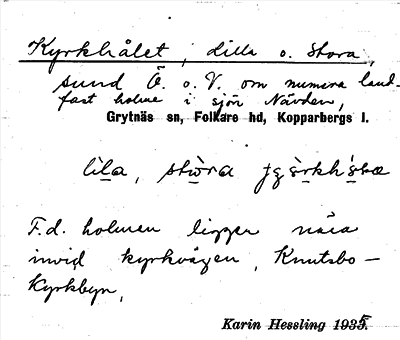 Kyrkhålet, lilla o. stora,
sund Ö. o. V. om numera land-
fast holme i sjön Nävden,
Grytnäs sn, Folkare hd, Kopparbergs l.
lila, stòra
F.d. holmen ligger nära
invid kyrkvägen, Knutsbo –
Kyrkbyn.
Karin Hessling 1935.